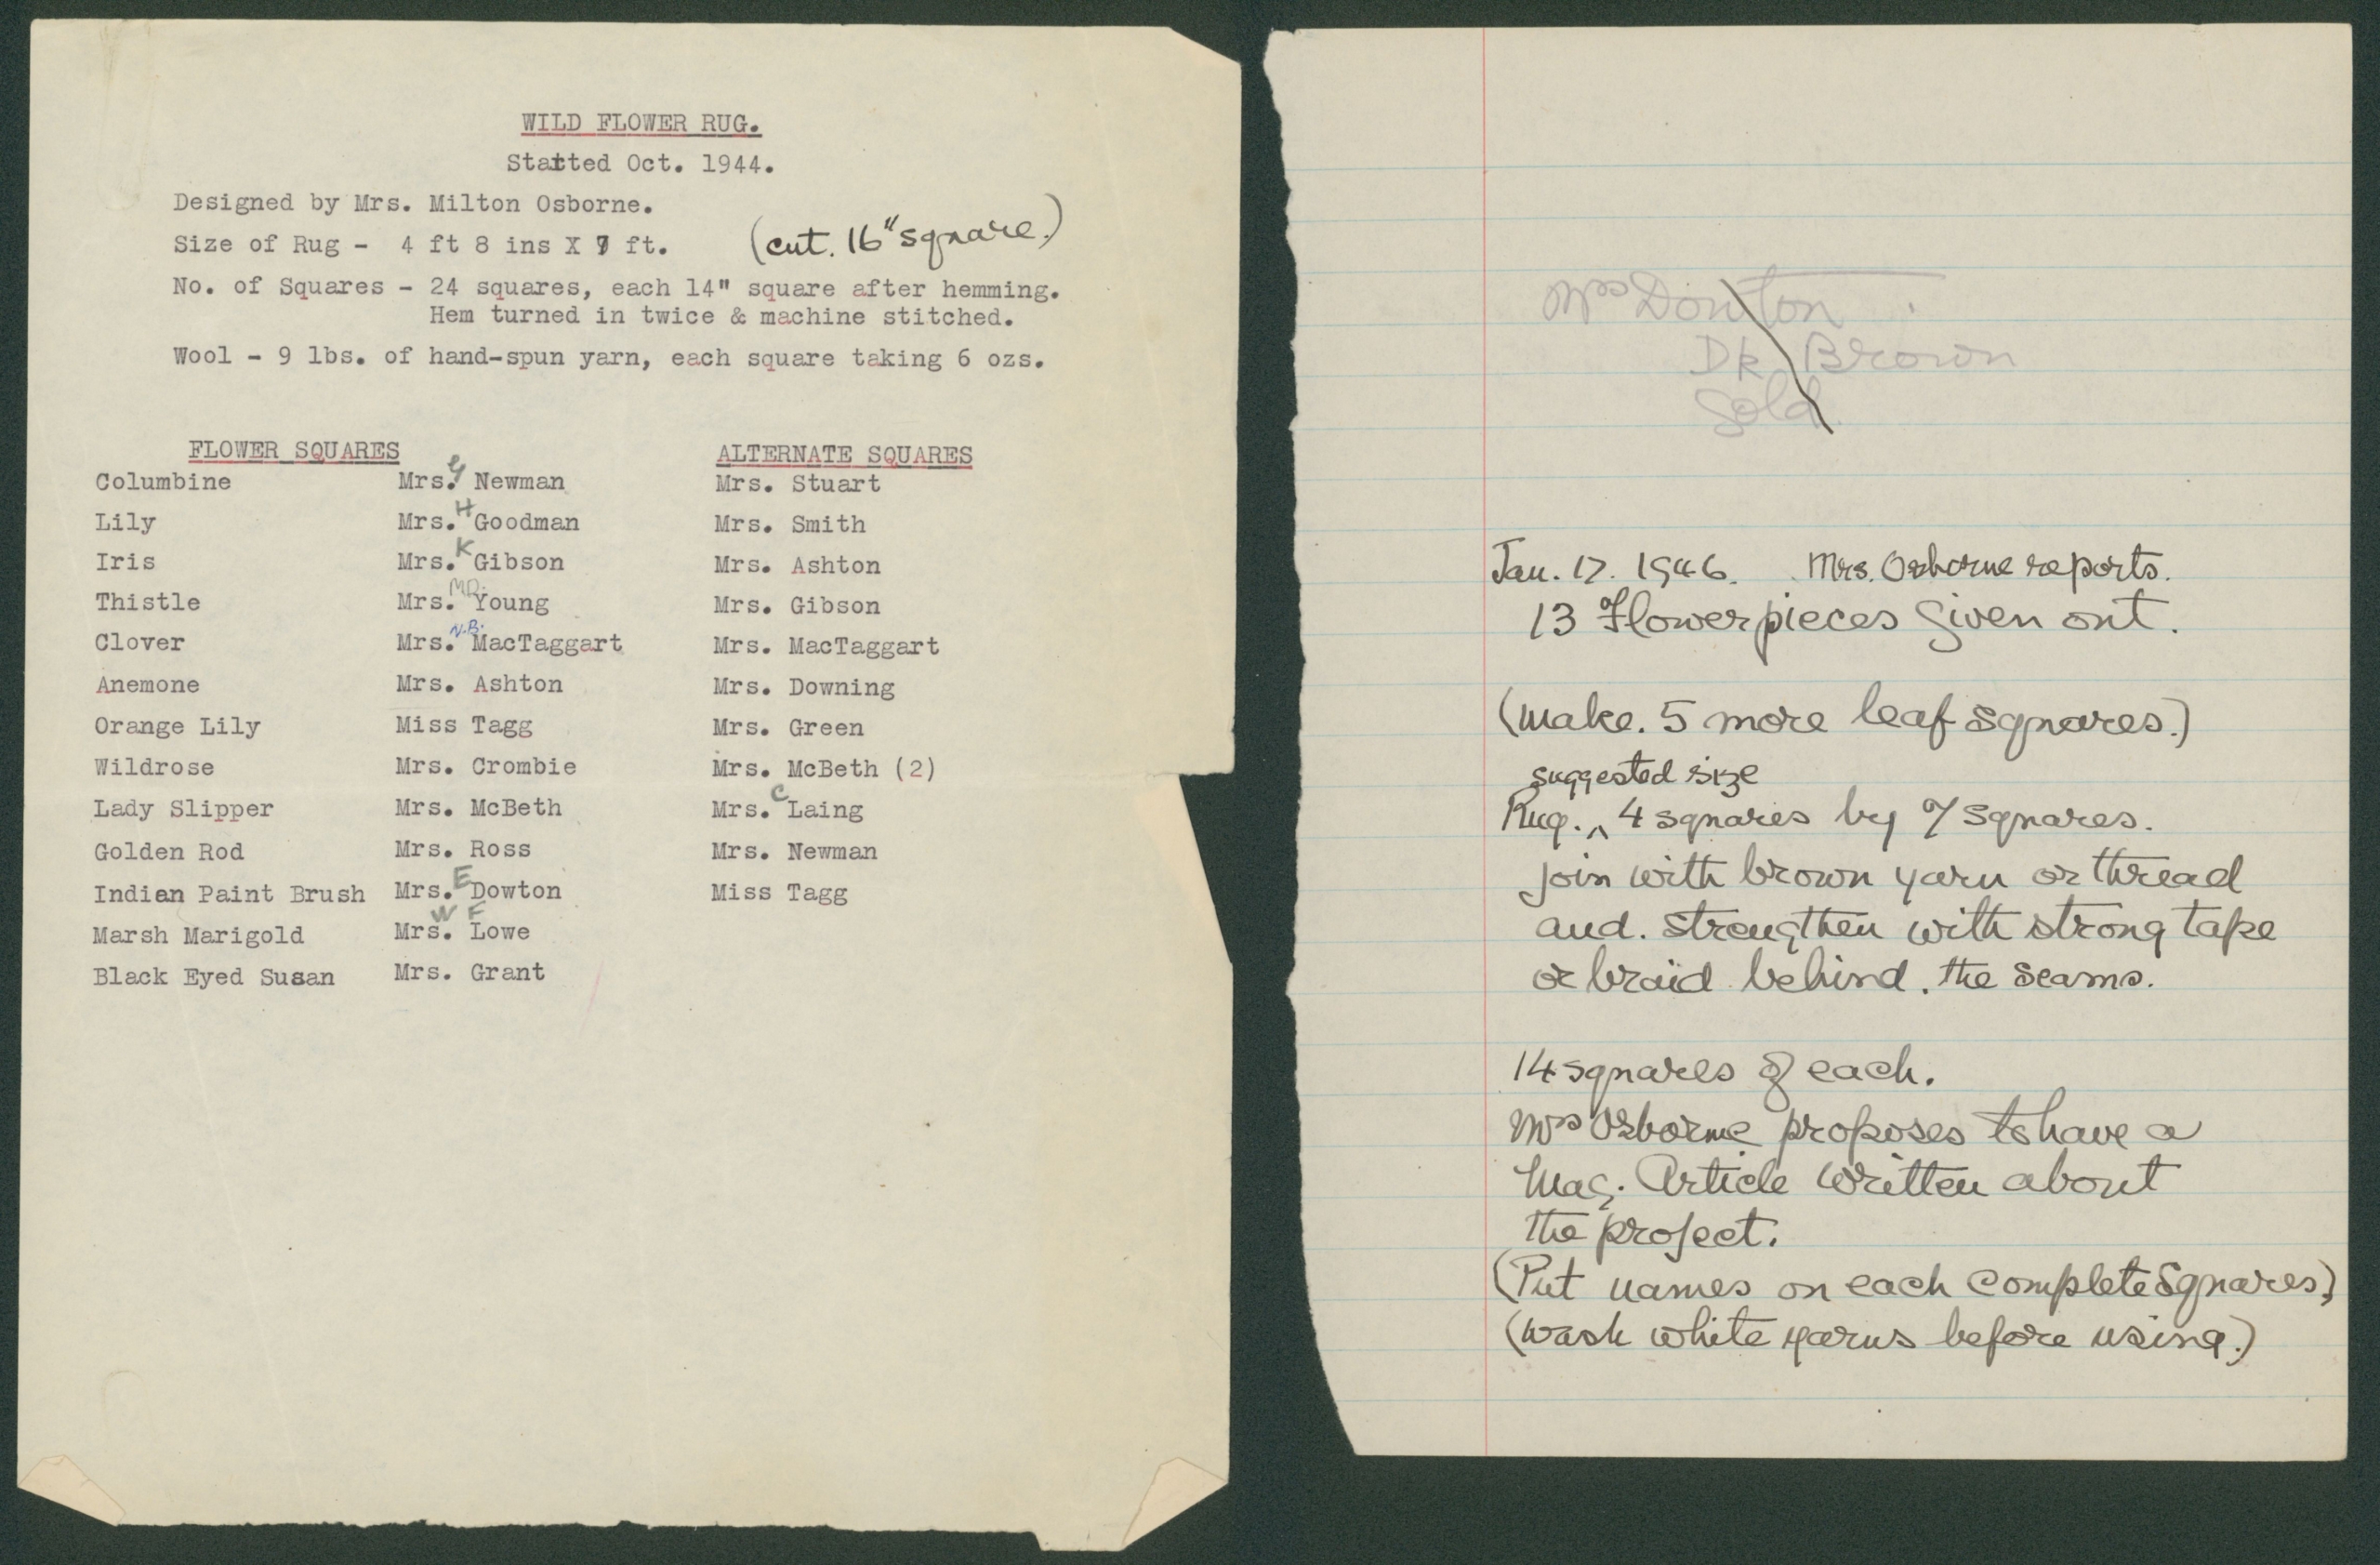 WILD FLOWER RUG.
Started Oct. 1944.
Designed by Mrs. Milton Osborne.
Size of Rug - 4 ft 8 ins X 7 ft. (cut. 16" square.)
No. of Squares - 24 squares, each 14" square after hemming.
Hem turned in twice & machine stitched.
Wool - 9 lbs. of hand-spun yarn, each square taking 6 ozs.
FLOWER SQUARES ALTERNATE SQUARES
Columbine Mrs. G Newman Mrs. Stuart
Lily Mrs. H Goodman Mrs. Smith
Iris Mrs. K Gibson Mrs. Ashton
Thistle Mrs. M.D. Young Mrs. Gibson
Clover Mrs. N.B. MacTaggart Mrs. MacTaggart
Anemone Mrs. Ashton Mrs. Downing
Orange Lily Miss Tagg Mrs. Green
Wildrose Mrs. Crombie Mrs. McBeth (2)
Lady Slipper Mrs. McBeth Mrs. C Laing
Golden Rod Mrs. Ross Mrs. Newman
Indian Paint Brush Mrs. E Dowton Miss Tagg
Marsh Marigold Mrs. W F Lowe
Black Eyed Susan Mrs. Grant
Mrs Dowton
Dk Brown
Gold.
Jan. 17. 1946. Mrs. Osborne reports.
13 Flower pieces given out.
(make. 5 more leaf squares.)
suggested size
Rug. ^ 4 squares by 7 squares.
join with brown yarn or thread
and. strengthen with strong tape
or braid behind. the seams.
14 squares of each.
Mrs Osborne proposes to have a
Mag. Article written about
the project.
(Put names on each complete squares.)
(wash white yarns before using.)